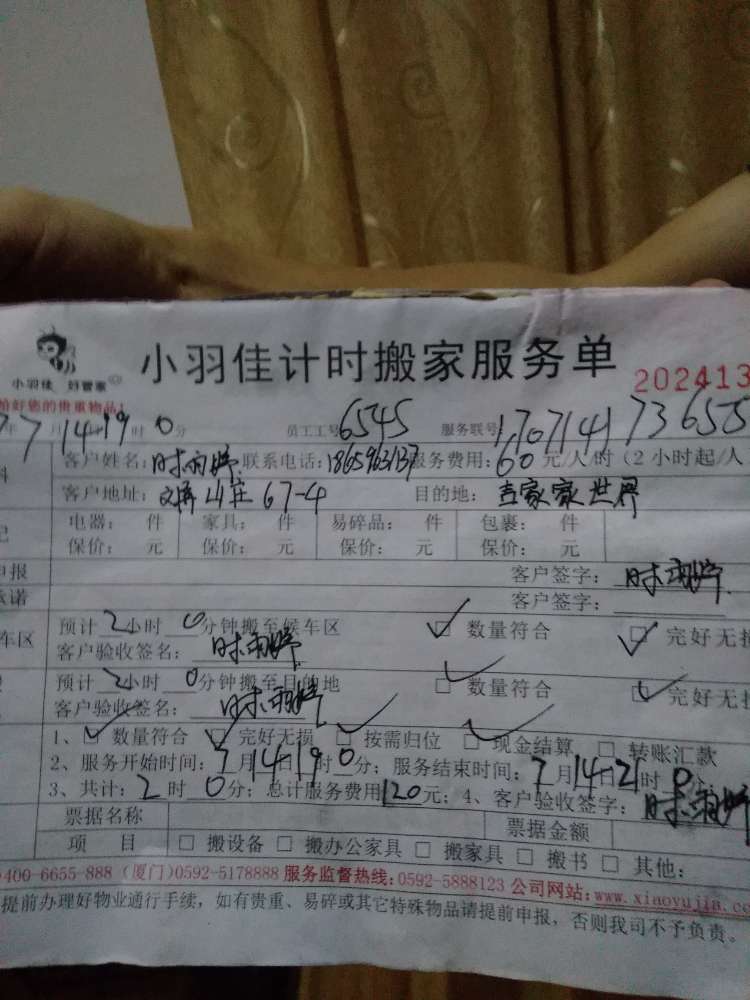 小羽佳计时搬家服务单
小羽佳 好管家
202413
您的贵重物品!
年7月14日19时0分 员工工号6545 服务联号170714173655
客户姓名:时雨婷 联系电话:18659631137 服务费用:60元/人/时(2小时起/人
客户地址:文屏山庄67-4 目的地:喜家家世界
电器: 件 家具: 件 易碎品: 件 包裹: 件
保价: 元 保价: 元 保价: 元 保价: 元
申报 客户签字:时雨婷
承诺 客户签字:
预计2小时0分钟搬至候车区 数量符合 完好无损
车区 客户验收签名:时雨婷
预计2小时0分钟搬至目的地 数量符合 完好无损
客户验收签名:时雨婷
1、□数量符合 □完好无损 □按需归位 □现金结算 □转账汇款
2、服务开始时间:7月14日19时0分;服务结束时间:7月14日21时0分;
3、共计:2时0分;总计服务费用120元;4、客户验收签字:时雨婷
票据名称 票据金额
项 目 □搬设备 □搬办公家具 □搬家具 □搬书 □其他:
400-6655-888 (厦门)0592-5178888 服务监督热线:0592-5888123 公司网站:www.xiaoyujia.co
提前办理好物业通行手续,如有贵重、易碎或其它特殊物品请提前申报,否则我司不予负责。